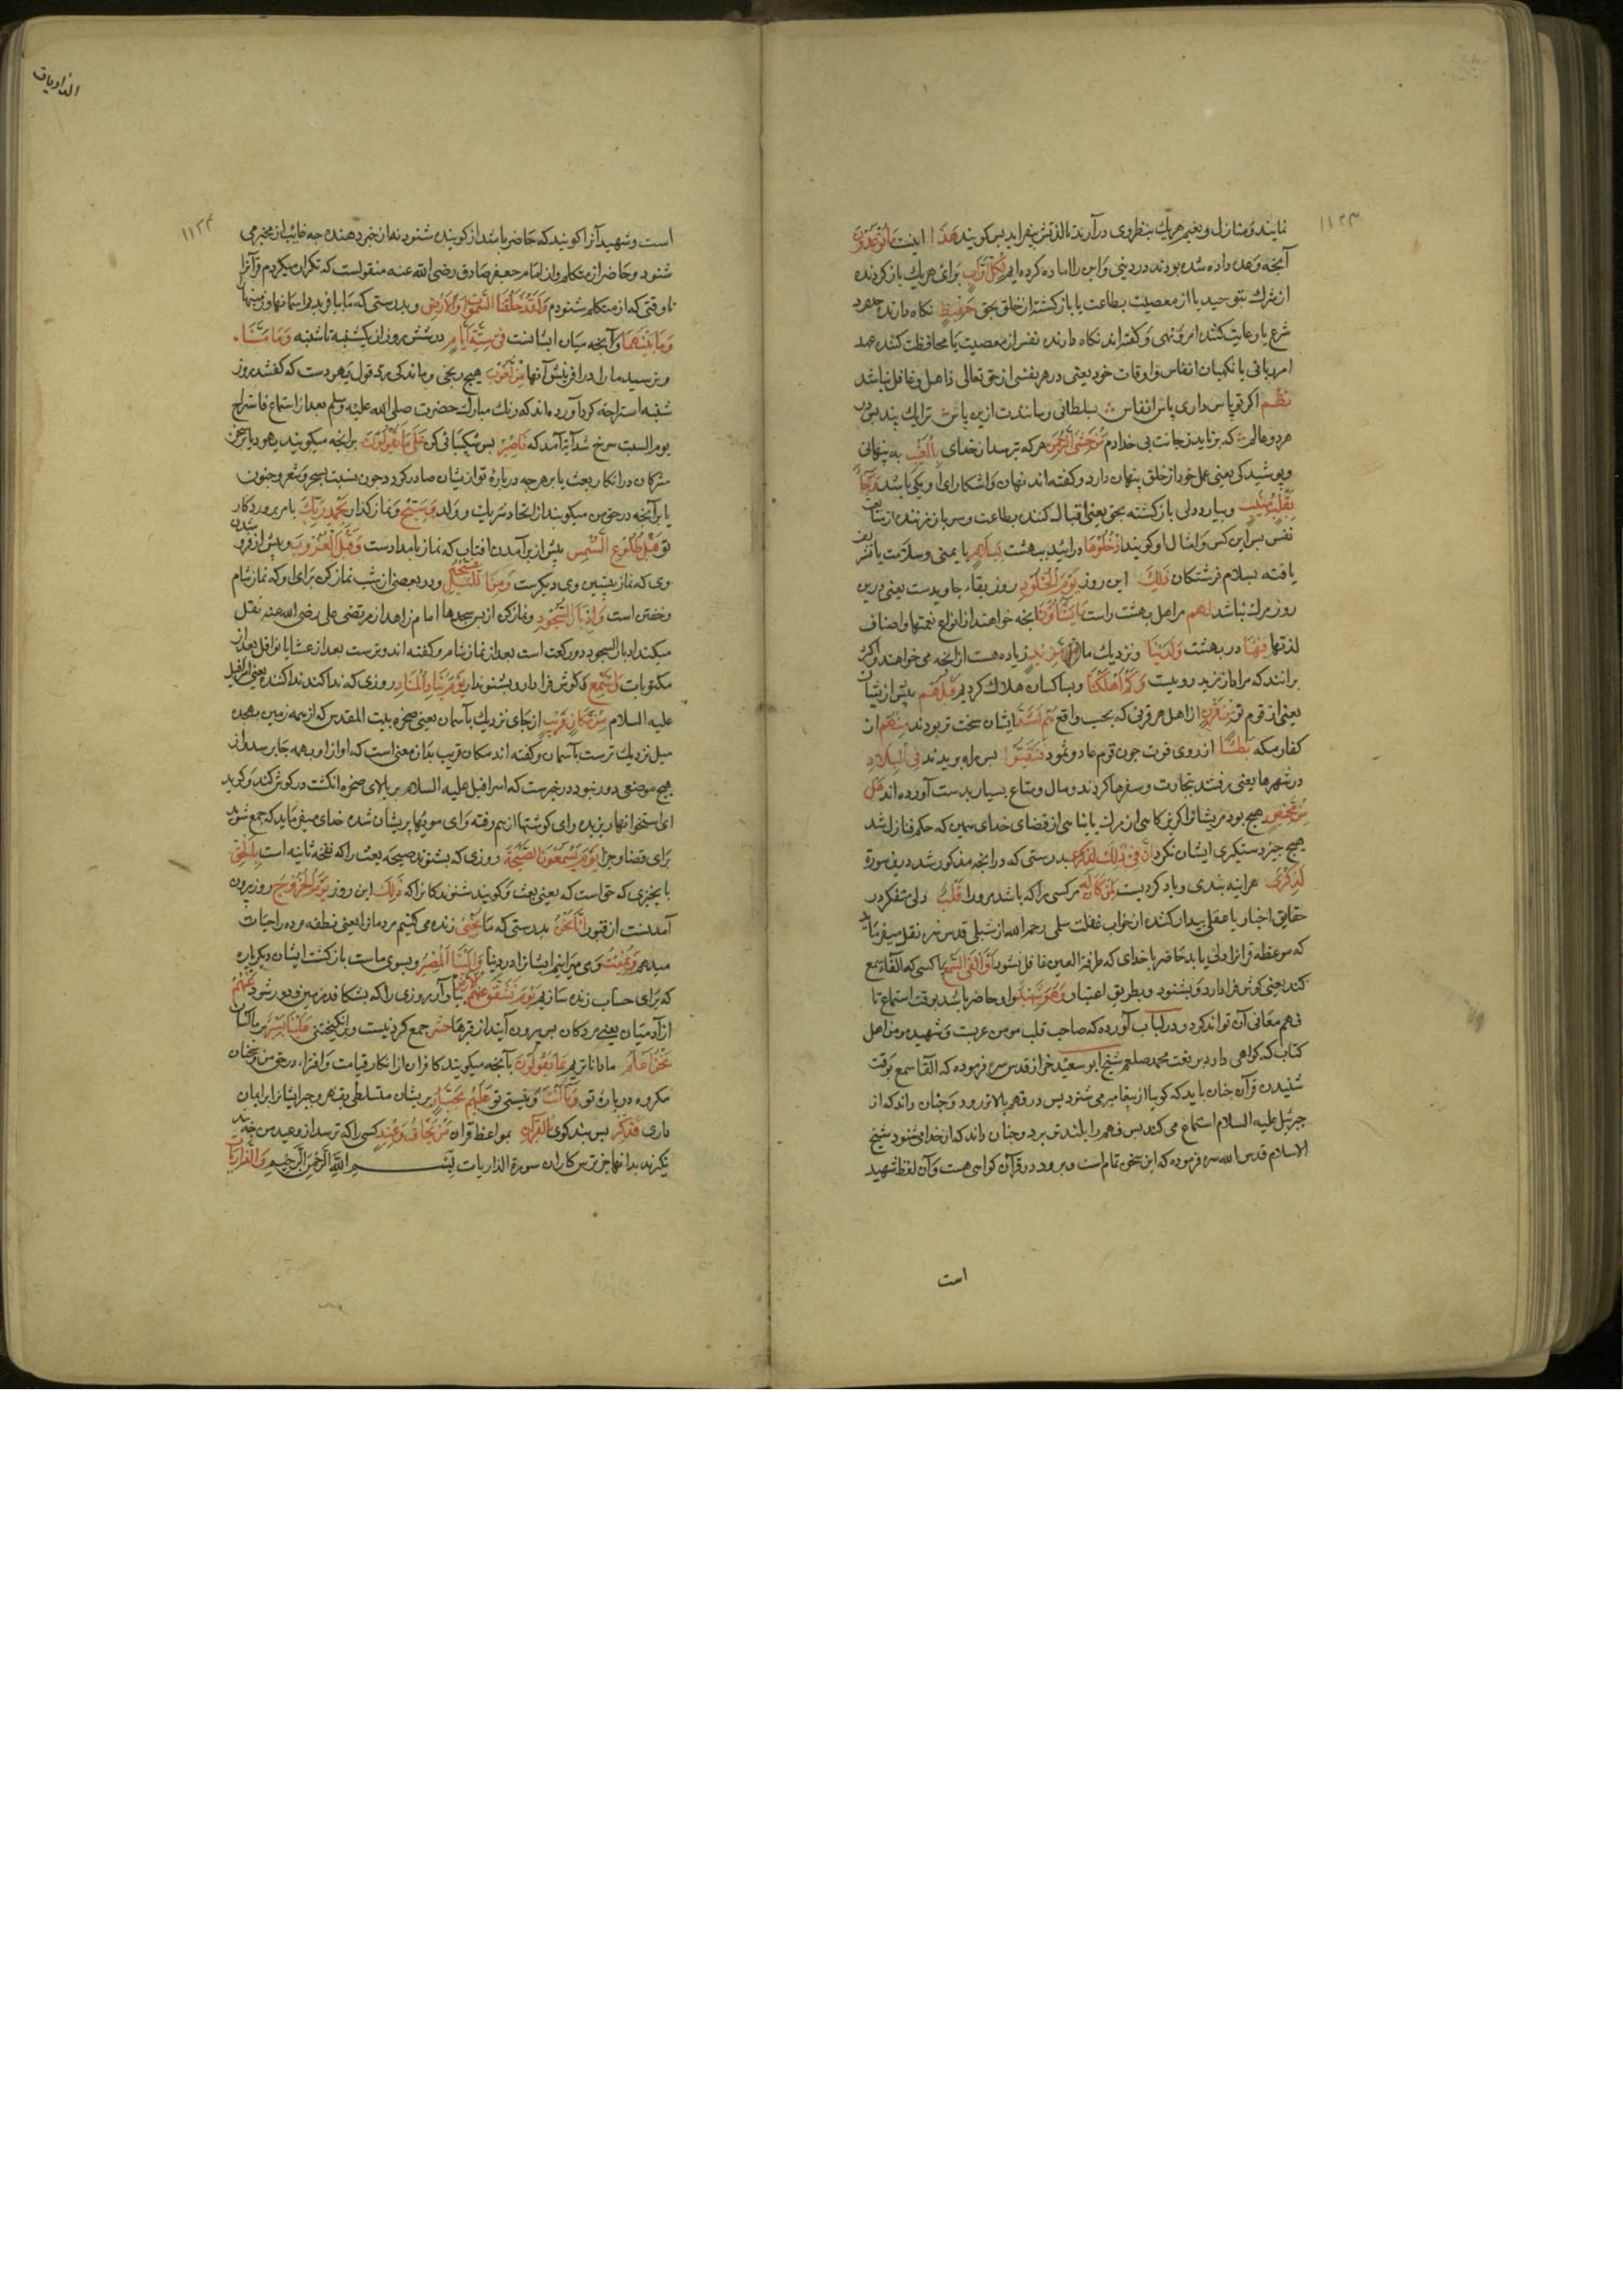 ١١٢٣
نمایند و منازل و نعیم هر یك بنظر وی در آرند تا لذتش بیفزاید پس کویند هَذَا اینست مَا تُوعَدُونَ
آنچه وعده داده شده بودند در دنیی و این را اماده کرده ایم لِكُلِّ أَوَّابٍ برای هر یك باز کردنده
از شرك بتوحید یا از معصیت بطاعت یا باز کشته از خلق بحق حَفِيظٍ نکاه دارنده حدود
شرع یا رعایت کننده امر و نهی و کفته اند نکاه دارنده نفس از معصیت یا محافظت کننده عهد
یا نکهبان انفاس و اوقات خود یعنی در هر نفسی از حق تعالی ذاهل و غافل نباشد
نظم اکر تو پاس داری پاس انفاس بسلطانی رسانندت ازین پاس ترا یك پند بس در
هر دو عالم که بر نایدز جانت بی خدا دم مَنْ خَشِيَ الرَّحْمَنَ هرکه ترسد از خدای بِالْغَيْبِ به پنهانی
و پوشیدکی یعنی عمل خود از خلق پنهان دارد و کفته اند نهان و اشکارای او یکی باشد وَجَاءَ
بِقَلْبٍ مُنِيبٍ و بیارد دلی باز کشته بحق یعنی اقبال کننده بطاعت
نفس پس این کس و امثال او کویند ادْخُلُوهَا درائید ببهشت بِسَلَامٍ با یمنی و سلامت یا تشریف
یافته بسلام فرشتکان ذَلِكَ این روز يَوْمُ الْخُلُودِ روز بقاء جاویدست یعنی درین
روز مرك نباشد لَهُمْ مر اهل بهشت راست مَا يَشَاءُونَ آنچه خواهند از انواع نعمتها و اصناف
لذتها فِيهَا در بهشت وَلَدَيْنَا و نزدیك ما مَزِيدٌ زیاده هست از آنچه می خواهند و اکثر
برانند که مراد از مزید رویت وَكَمْ أَهْلَكْنَا و بسا کسان هلاك کردیم قَبْلَهُمْ پیش از ایشان
یعنی از قوم تو مِنْ قَرْنٍ از اهل هر قرنی که بحسب واقع هُمْ أَشَدُّ ایشان سخت تر بودند مِنْهُمْ از
کفار مکه بَطْشًا از روی قوت چون قوم عاد و ثمود فَنَقَّبُوا پس راه بریدند فِي الْبِلَادِ
در شهرها یعنی برفتند بتجارت و سفرها کردند و مال و متاع بسیار بدست آورده اند هَلْ
مِنْ مَحِيصٍ هیچ بود مر ایشانرا کریزکاهی از مرك یا پناهی از قضای خدای
هیچ چیز دستکیری ایشان نکرد إِنَّ فِي ذَلِكَ لَذِكْرَى بدرستی که در آنچه مذکور شد درین سورة
لَذِكْرَى هر اینه پندی و یاد کردیست لِمَنْ كَانَ لَهُ مر کسی را که باشد مرورا قَلْبٌ دلی متفکر در
حقایق اخبار یا عقلی بیدار کننده از خواب غفلت سلمی رحمه الله از شبلی قدس سره نقل میفرماید
که موعظه قرانرا دلی باید حاضر با خدای که طرفة العین غافل نشود أَوْ أَلْقَى السَّمْعَ یا کسی که القاء سمع
کند یعنی کوش فرا دارد و بشنود و بطریق اعتبار وَهُوَ شَهِيدٌ و او حاضر باشد بوقت استماع تا
فهم معانی آن تواند کرد در لباب آورده که صاحب قلب مومن عربست و شهید مومن اهل
کتاب که کواهی دارد بر نعت محمد صلعم شیخ ابو سعید خراز قدس سره فرموده که القا سمع بوقت
شنیدن قرآن چنان باید که کویا از پیغامبر می شنود پس در فهم بالاتر رود و چنان داند که از
جبرئیل علیه السلام استماع می کند پس فهم را بلندتر برد و چنان داند که از خدا می شنود شیخ
الاسلام قدس الله سره فرموده که این سخن تمام است و برو در قرآن کواهی هست و آن لفظ شهید
است
الذاریات
١١٢٤
است و شهید آنرا کویند که حاضر باشد از کوینده شنود نه از خبر دهنده چه غایب از مخبر می
شنود و حاضر از متکلم و از امام جعفر صادق رضی الله عنه منقولست که تکرار میکردم قرآنرا
تا وقتی که از متکلم شنودم وَلَقَدْ خَلَقْنَا السَّمَوَاتِ وَالْأَرْضَ و بدرستی که ما بیافریدیم اسمانها و زمینها
وَمَا بَيْنَهُمَا و آنچه میان ایشانست فِي سِتَّةِ أَيَّامٍ در شش روز از یکشنبه تا شنبه وَمَا مَسَّنَا
و نرسید مارا در افرینش آنها مِنْ لُغُوبٍ هیچ رنجی و ماندکی رد قول یهودست که کفتند روز
شنبه استراحت کرد آورده اند که رنك مبارك حضرت صلی الله علیه وسلم بعد از استماع فاستراح
یوم السبت سرخ شد آیه آمد که فَاصْبِرْ پس شکیبائی کن عَلَى مَا يَقُولُونَ بر انچه میکویند یهود
مشرکان در انکار بعث یا بر هرچه درباره تو از ایشان صادر کردد چون نسبت بسحر و شعر و جنون
یا بر آنچه در حق من میکویند از اتخاذ شریك و ولد وَسَبِّحْ و نماز کذار بِحَمْدِ رَبِّكَ بامر پروردکار
تو قَبْلَ طُلُوعِ الشَّمْسِ پیش از بر آمدن افتاب که نماز بامدادست وَقَبْلَ الْغُرُوبِ و پیش از فرو شدن
وی که نماز پسین وی دیکرست وَمِنَ اللَّيْلِ فَسَبِّحْهُ و در بعضی از شب نماز کن برای او که نماز شام
و خفتن است وَأَدْبَارَ السُّجُودِ و نماز کن از پس سجدها امام زاهد از مرتضی علی رضی الله عنه نقل
میکند ادبار السجود دو رکعت است بعد از نماز شام و کفته اند وترست بعد از عشا یا نوافل بعد از
مکتوبات وَاسْتَمِعْ و کوش فرا دار و بشنو يَوْمَ يُنَادِ الْمُنَادِ روزی که ندا کند ندا کننده یعنی اسرافیل
علیه السلام مِنْ مَكَانٍ قَرِيبٍ از جای نزدیك بآسمان یعنی صخره بیت المقدس که از همه زمین بهجده
میل نزدیك ترست بآسمان و کفته اند مکان قریب بدان معنی است که اواز او بهمه جا برسد و از
هیچ موضعی دور نبود در خبرست که اسرافیل علیه السلام بر بالای صخره انکشت در کوش کند و کوید
ای استخوانها ریزیده وای کوشتها از هم رفته وای مویها پریشان شده خدای میفرماید که جمع شوید
برای قضا و جزا يَوْمَ يَسْمَعُونَ الصَّيْحَةَ روزی که بشنوند صیحه بعث را که نفخه ثانیه است بِالْحَقِّ
بان چیزی که حق است که یعنی بعث و کویند ذَلِكَ این روز يَوْمُ الْخُرُوجِ روز بیرون
آمدنست از قبور إِنَّا نَحْنُ بدرستی که ما نُحْيِي زنده می کنیم مردمانرا یعنی نطفه مرده را حیات
میدهیم وَنُمِيتُ و می میرانیم ایشانرا در دنیا وَإِلَيْنَا الْمَصِيرُ و بسوی ماست باز کشت ایشان دیکر باره
که برای حساب زنده سازیم يَوْمَ تَشَقَّقُ الْأَرْضُ عَنْهُمْ یاد آر روزی را که بشکافد زمین و دور شود عَنْهُمْ
از آدمیان یعنی مردکان پس بیرون آیند از قبرها حَشْرٌ جمع کردنیست و برانکیختنی عَلَيْنَا يَسِيرٌ بر ما آسان
نَحْنُ أَعْلَمُ ما داناتریم بِمَا يَقُولُونَ بآنچه میکویند کافران از انکار قیامت و افتراء در حق من و سخنان
مکروه درباره تو وَمَا أَنْتَ و نیستی تو عَلَيْهِمْ بِجَبَّارٍ بر ایشان مسلطی بقهر و جبر ایشانرا بر ایمان
داری فَذَكِّرْ پس پند کوی بِالْقُرْآنِ بمواعظ قران مَنْ يَخَافُ وَعِيدِ کسی را که ترسد از وعید من
نکرند بدانها جز ترس کاران سورة الذاریات بسم الله الرحمن الرحیم وَالذَّارِيَاتِ